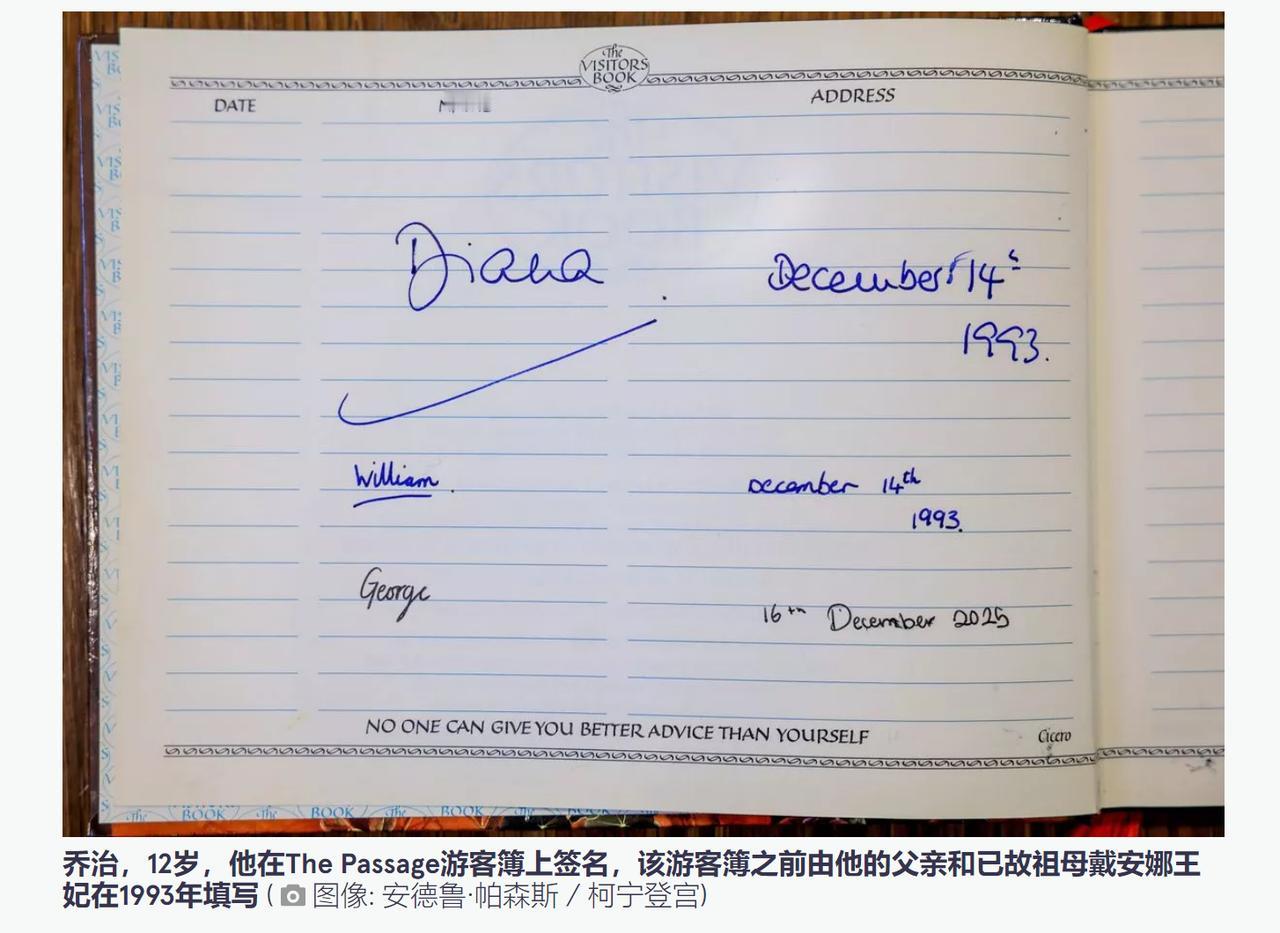 The
VISITORS
BOOK
DATE
ADDRESS
Diana
December 14th
1993.
William.
December 14th
1993.
George
16th December 2025
NO ONE CAN GIVE YOU BETTER ADVICE THAN YOURSELF
Cicero
The BOOK The BOOK The BOOK The
乔治，12岁，他在The Passage游客簿上签名，该游客簿之前由他的父亲和已故祖母戴安娜王
妃在1993年填写 ( 图像: 安德鲁·帕森斯 / 柯宁登宫)